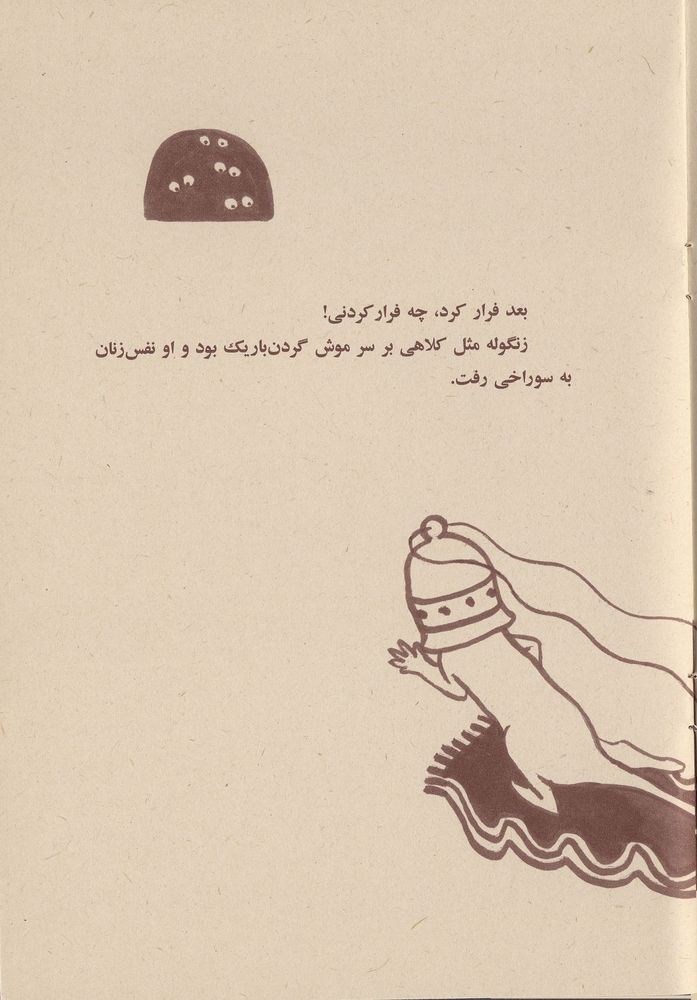 بعد فرار کرد، چه فرارکردنی!
زنگوله مثل کلاهی بر سر موش گردن‌باریک بود و او نفس‌زنان
به سوراخی رفت.